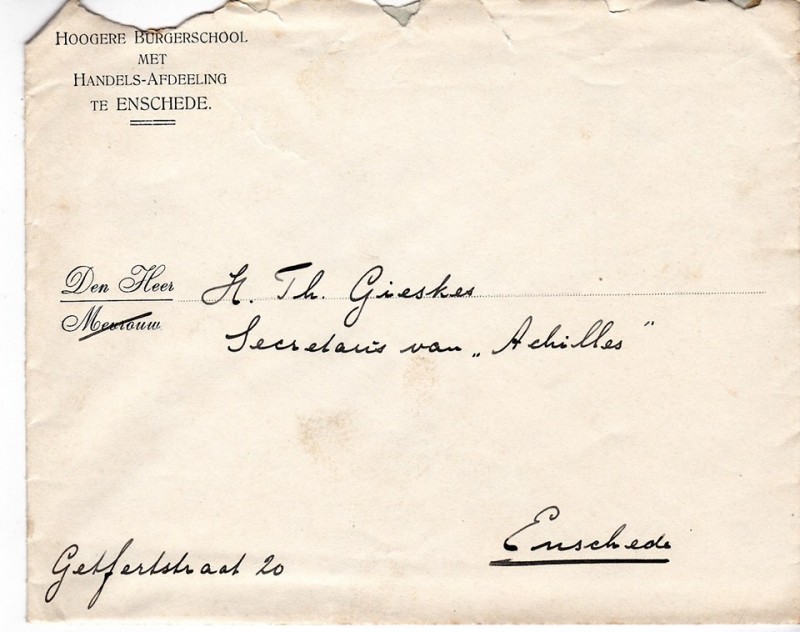 HOOGERE BURGERSCHOOL
MET
HANDELS-AFDEELING
TE ENSCHEDE.
Den Heer H. Th. Gieskes
Mevrouw
Secretaris van „Achilles”
Enschede
Getfertstraat 20